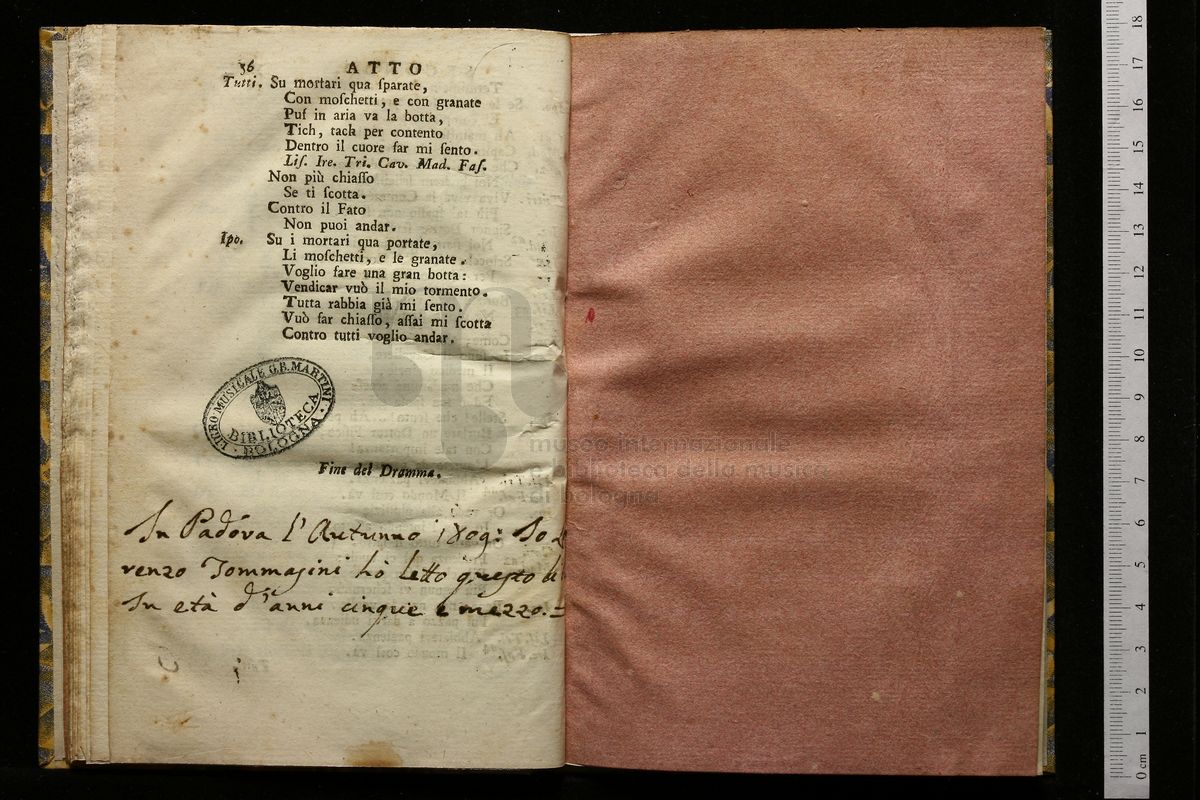 56
ATTO
Tutti. Su mortari qua ſparate,
Con moſchetti, e con granate
Puf in aria va la botta,
Tich, tach per contento
Dentro il cuore far mi ſento.
Liſ. Ire. Tri. Cav. Mad. Faſ.
Non più chiaſſo
Se ti ſcotta.
Contro il Fato
Non puoi andar.
Ipo. Su i mortari qua portate,
Li moſchetti, e le granate.
Voglio fare una gran botta:
Vendicar vuò il mio tormento.
Tutta rabbia già mi ſento.
Vuò far chiaſſo, aſſai mi ſcotta
Contro tutti voglio andar.
LICEO MUSICALE G.B. MARTINI
BIBLIOTECA
· BOLOGNA ·
Fine del Dramma.
museo internazionale
e biblioteca della musica
di bologna
In Padova l'Autunno 1809: Io
renzo Tommasini hò letto questo
In età d'anni cinque e mezzo. =
0 cm 1 2 3 4 5 6 7 8 9 10 11 12 13 14 15 16 17 18